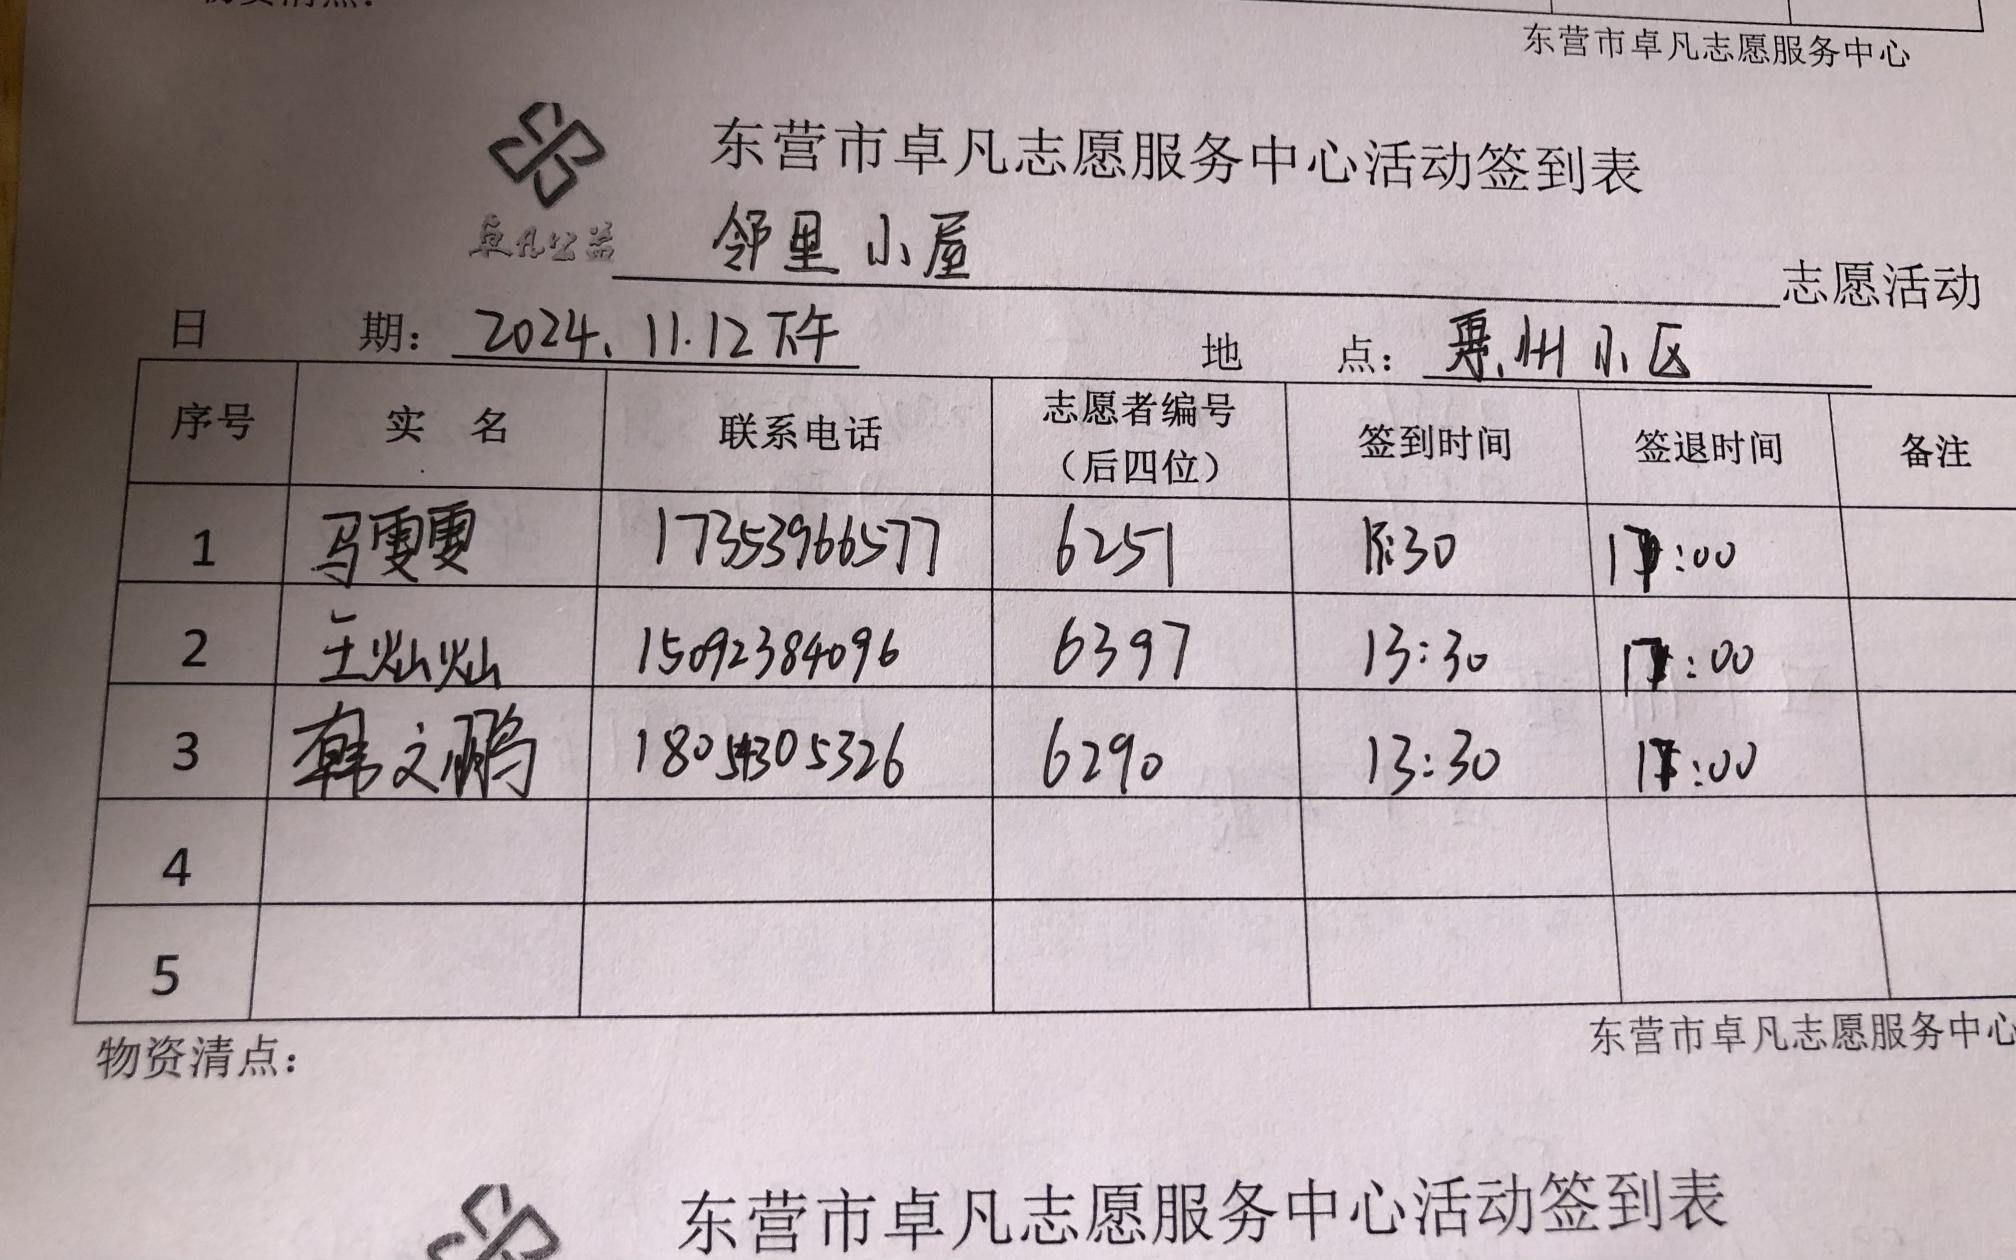 物资清点：
东营市卓凡志愿服务中心
东营市卓凡志愿服务中心活动签到表
卓凡公益 邻里小屋 志愿活动
日 期： 2024.11.12下午 地 点： 惠州小区
序号 实 名 联系电话 志愿者编号（后四位） 签到时间 签退时间 备注
1 马雯雯 17353966577 6251 :30 17:00
2 王灿灿 15092384096 6397 13:30 17:00
3 韩文鹏 18054305326 6290 13:30 17:00
4
5
物资清点：
东营市卓凡志愿服务中心
东营市卓凡志愿服务中心活动签到表